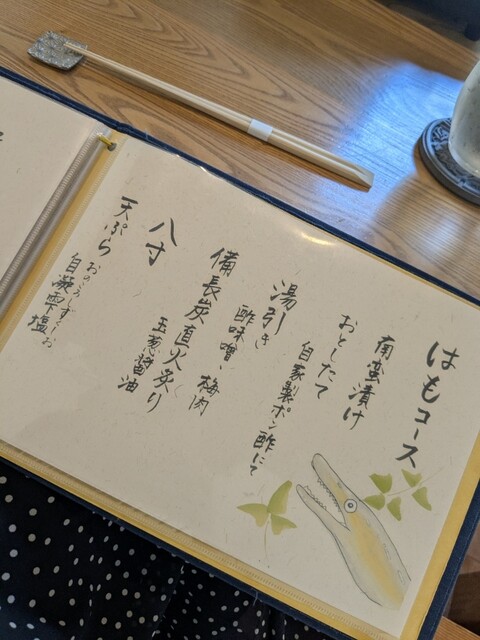 はもコース
南蛮漬け
おとしたて
自家製ポン酢にて
湯引き
酢味噌、梅肉
備長炭直火炙り
玉葱醤油
八寸
天ぷら
おのころしずくしお
自凝雫塩